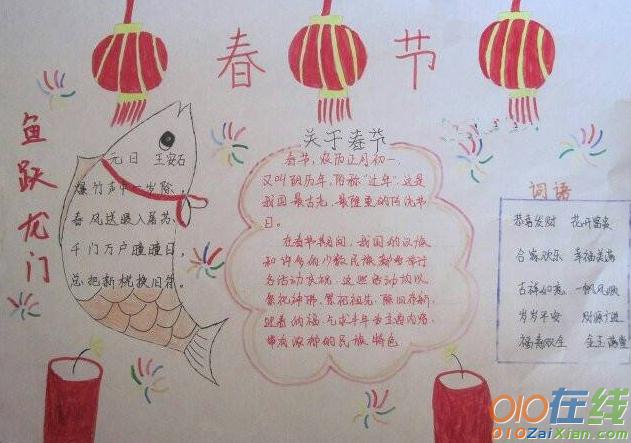 春节
鱼跃龙门
元日 王安石
爆竹声中一岁除,
春风送暖入屠苏,
千门万户曈曈日,
总把新桃换旧符。
关于春节
春节,农历正月初一,
又叫阴历年,俗称“过年”这是
我国最古老、最隆重的传统节
日。
在春节期间,我国的汉族
和许多的少数民族都要举行
各活动庆祝,这些活动均以
祭祝神佛、祭祀祖先、除旧布新、
迎春纳福、气求丰年为主要内容,
带有浓郁的民族特色
词语
恭喜发财 花开富贵
合家欢乐 幸福美满
吉祥如意 一帆风顺
岁岁平安 财源广进
福寿双全 金玉满堂
010在线
010ZaiXian.com